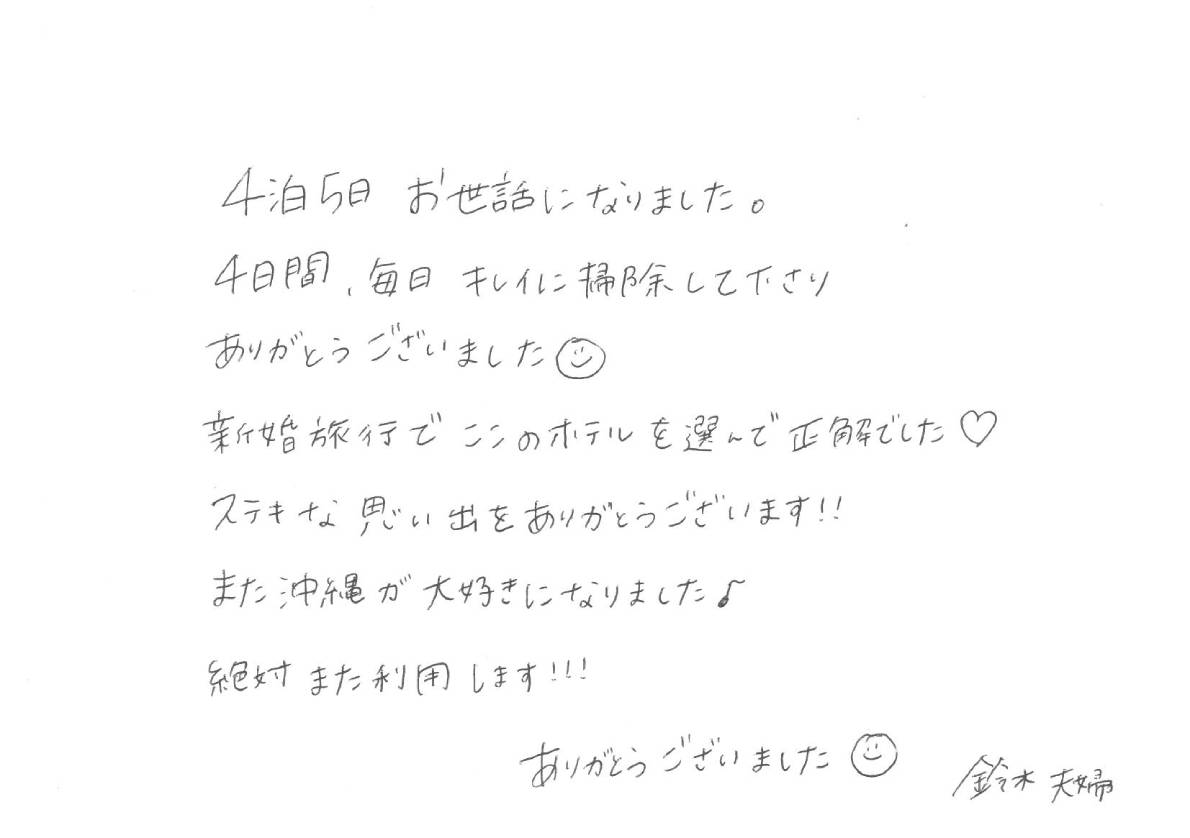 4泊5日 お世話になりました。
4日間、毎日 キレイに掃除して下さり
ありがとうございました☺
新婚旅行で ここのホテルを選んで正解でした♡
ステキな思い出をありがとうございます!!
また沖縄が大好きになりました♪
絶対また利用します!!!
ありがとうございました☺
鈴木夫婦